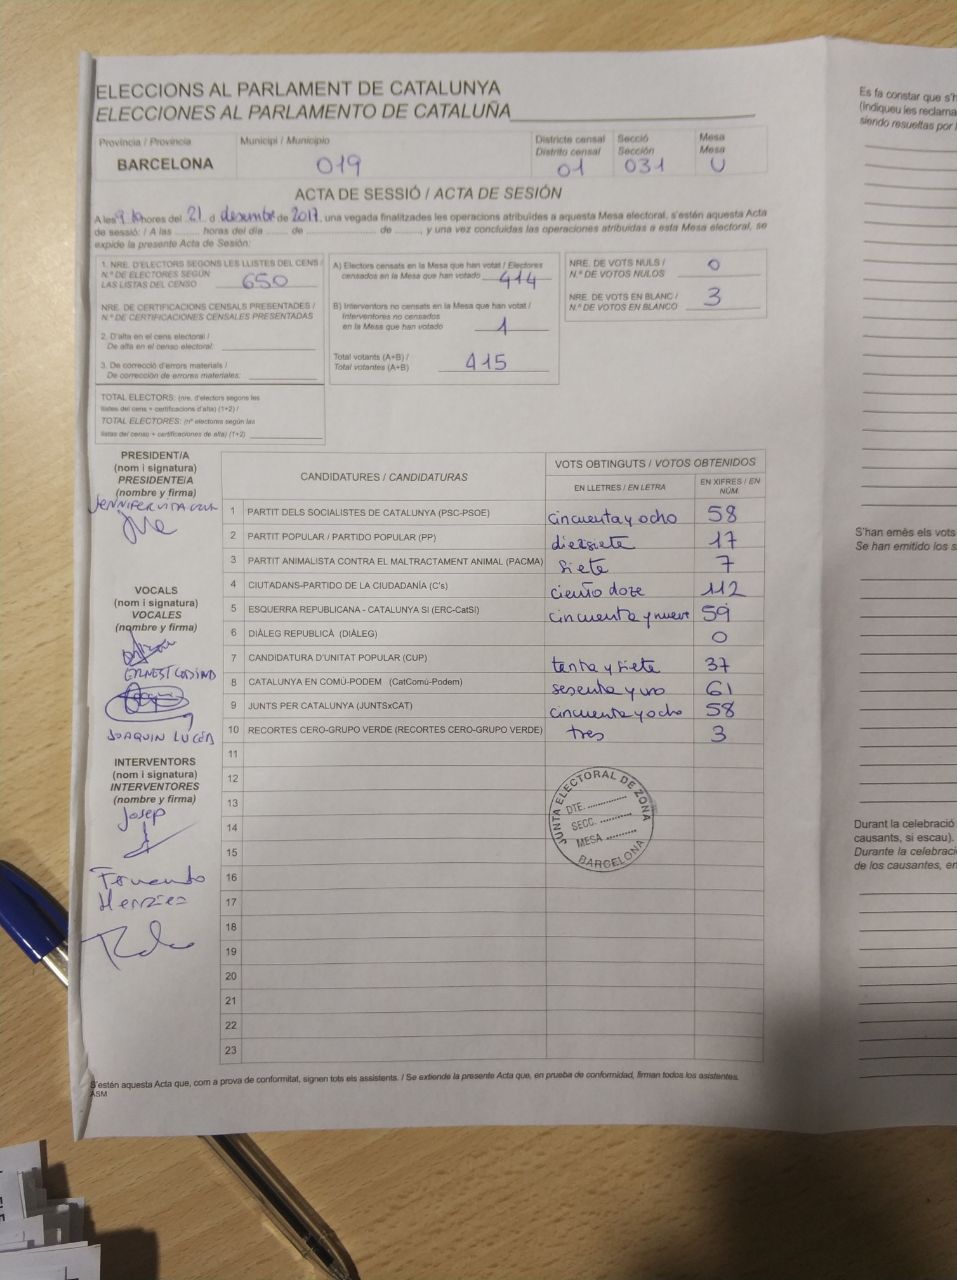 ELECCIONS AL PARLAMENT DE CATALUNYA
ELECCIONES AL PARLAMENTO DE CATALUÑA
Província / Provincia
BARCELONA
Municipi / Municipio
019
Districte censal
Distrito censal
01
Secció
Sección
031
Mesa
Mesa
U
ACTA DE SESSIÓ / ACTA DE SESIÓN
A les hores del 21 d desembre de 2017, una vegada finalitzades les operacions atribuïdes a aquesta Mesa electoral, s'estén aquesta Acta
de sessió: / A las ......... horas del día ........ de .......................... de ........, y una vez concluidas las operaciones atribuidas a esta Mesa electoral, se
expide la presente Acta de Sesión:
1. NRE. D'ELECTORS SEGONS LES LLISTES DEL CENS /
N.º DE ELECTORES SEGÚN
LAS LISTAS DEL CENSO 650
NRE. DE CERTIFICACIONS CENSALS PRESENTADES /
N.º DE CERTIFICACIONES CENSALES PRESENTADAS
2. D'alta en el cens electoral /
De alta en el censo electoral:
3. De correcció d'errors materials /
De corrección de errores materiales:
TOTAL ELECTORS: (nre. d'electors segons les
llistes del cens + certificacions d'alta) (1+2) /
TOTAL ELECTORES: (nº electores según las
listas del censo + certificaciones de alta) (1+2)
A) Electors censats en la Mesa que han votat / Electores
censados en la Mesa que han votado 414
B) Interventors no censats en la Mesa que han votat /
Interventores no censados
en la Mesa que han votado 1
Total votants (A+B) /
Total votantes (A+B) 415
NRE. DE VOTS NULS /
N.º DE VOTOS NULOS 0
NRE. DE VOTS EN BLANC /
N.º DE VOTOS EN BLANCO 3
PRESIDENT/A
(nom i signatura)
PRESIDENTE/A
(nombre y firma)
JENNIFER
VOCALS
(nom i signatura)
VOCALES
(nombre y firma)
ERNEST
JOAQUIN LUCEA
INTERVENTORS
(nom i signatura)
INTERVENTORES
(nombre y firma)
Josep
CANDIDATURES / CANDIDATURAS
VOTS OBTINGUTS / VOTOS OBTENIDOS
EN LLETRES / EN LETRA
EN XIFRES / EN
NÚM.
1 PARTIT DELS SOCIALISTES DE CATALUNYA (PSC-PSOE) cincuenta y ocho 58
2 PARTIT POPULAR / PARTIDO POPULAR (PP) diezsiete 17
3 PARTIT ANIMALISTA CONTRA EL MALTRACTAMENT ANIMAL (PACMA) siete 7
4 CIUTADANS-PARTIDO DE LA CIUDADANÍA (C's) ciento doze 112
5 ESQUERRA REPUBLICANA - CATALUNYA SI (ERC-CatSí) cincuenta y nueve 59
6 DIÀLEG REPUBLICÀ (DIÀLEG) 0
7 CANDIDATURA D'UNITAT POPULAR (CUP) tenta y siete 37
8 CATALUNYA EN COMÚ-PODEM (CatComú-Podem) sesenta y uno 61
9 JUNTS PER CATALUNYA (JUNTSxCAT) cincuenta y ocho 58
10 RECORTES CERO-GRUPO VERDE (RECORTES CERO-GRUPO VERDE) tres 3
11
12
13
14
15
16
17
18
19
20
21
22
23
JUNTA ELECTORAL DE ZONA
DTE. ..............
SECC. ..........
MESA ..........
BARCELONA
S'estén aquesta Acta que, com a prova de conformitat, signen tots els assistents. / Se extiende la presente Acta que, en prueba de conformidad, firman todos los asistentes.
ASM
Es fa constar que s'h
(indiqueu les reclama
siendo resueltas por l
S'han emès els vots
Se han emitido los s
Durant la celebració
causants, si escau).
Durante la celebraci
de los causantes, en